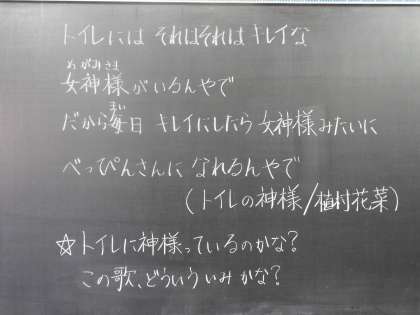 トイレには それはそれは キレイな
めがみさま
女神様がいるんやで
まい
だから毎日 キレイにしたら 女神様みたいに
べっぴんさんに なれるんやで
(トイレの神様/植村花菜)
☆トイレに神様っているのかな?
この歌、どういういみかな?